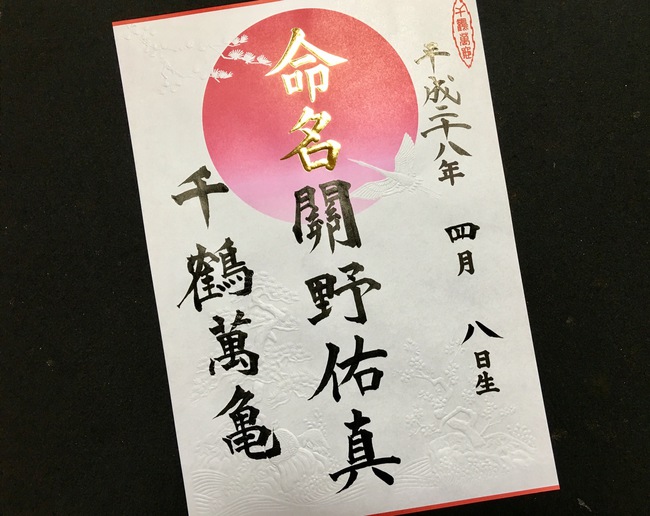 千鶴萬亀
平成二十八年 四月 八日生
命名 關野佑真
千鶴萬亀